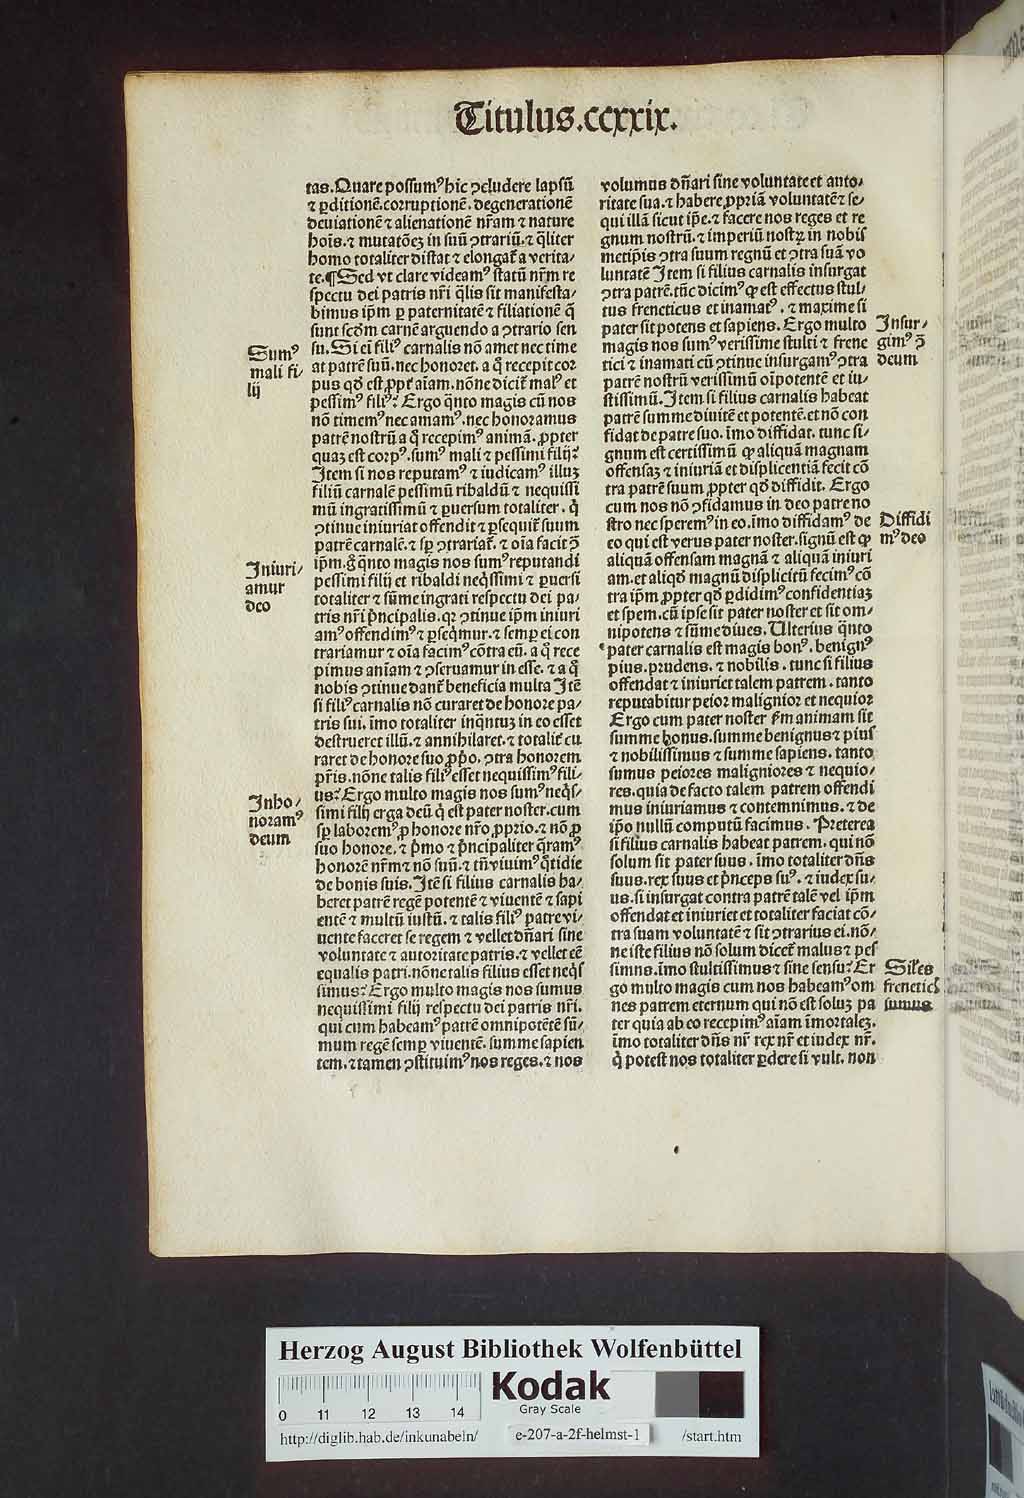 Titulus.ccxxix.
tas.Quare possumꝰ hic ↄcludere lapsū
⁊ ꝑditionē.corruptionē.degenerationē
deuiationē ⁊ alienationē nr̄am ⁊ nature
hoīs.⁊ mutatōeꝫ in suū ↄtrariū.⁊ q̄liter
homo totaliter distat ⁊ elongat᷒ a verita⸗
te.¶Sed vt clare videamꝰ statū nr̄m re
spectu dei patris nr̄i q̄lis sit manifesta⸗
bimus ip̄m ꝑ paternitatē ⁊ filiationē q̄
sunt scd̄m carnē arguendo a ↄtrario sen
su.Si ei᷒ filiꝰ carnalis nō amet nec time
at patrē suū.nec honoret.a q̊ recepit cor
pus qd̄ est ꝓpt᷒ aīam.nōne dicit᷒ malꝰ et
pessimꝰ filiꝰ? Ergo q̊nto magis cū nos
nō timemꝰ nec amamꝰ.nec honoramus
patrē nostrū a q̊ recepimꝰ animā.ꝓpter
quaꝫ est corpꝰ.sumꝰ mali ⁊ pessimi filij?
Item si nos reputamꝰ ⁊ iudicamꝰ illuꝫ
filiū carnalē pessimū ribaldū ⁊ nequissi
mū ingratissimū ⁊ ꝑuersum totaliter.q̇
ↄtinue iniuriat offendit ⁊ ꝑsequit᷒ suum
patrē carnalē.⁊ sꝑ ↄtrariat᷒.⁊ oīa facit ↄ̄
ip̄m.g̊ q̊nto magis nos sumꝰ reputandi
pessimi filij et ribaldi neq̇ssimi ⁊ ꝑuersi
totaliter ⁊ sūme ingrati respectu dei pa⸗
tris nr̄i p̄ncipalis.qꝛ ↄtinue ip̄m iniuri
amꝰ offendimꝰ ⁊ ꝑseq̇mur.⁊ semꝑ ei con
trariamur ⁊ oīa facimꝰ cōtra eū.a q̊ rece
pimus aniam ⁊ ↄseruamur in esse.⁊ a q̊
nobis ↄtinue dant᷒ beneficia multa Itē
si filiꝰ carnalis nō curaret de honore pa⸗
tris sui.īmo totaliter inq̊ntuꝫ in eo esset
destrueret illū.⁊ annihilaret.⁊ totalit᷒ cu
raret de honore suo ꝓp̄o.ↄtra honorem
pr̄is.nōne talis filiꝰ esset nequissimꝰ fili⸗
us? Ergo multo magis nos sumꝰ neq̇s⸗
simi filij erga deū q̇ est pater noster.cum
sꝑ laboremꝰ ꝓ honore nr̄o ꝓprio.⁊ nō ꝓ
suo honore.⁊ p̄mo ⁊ p̄ncipaliter q̄ramꝰ
honorē nr̄m ⁊ nō suū.⁊ tn̄ viuimꝰ q̊tidie
de bonis suis.Itē si filius carnalis ha⸗
beret patrē regē potentē ⁊ viuentē ⁊ sapi
entē ⁊ multū iustū.⁊ talis filiꝰ patre vi⸗
uente faceret se regem ⁊ vellet dn̄ari sine
voluntate ⁊ autoritate patris.⁊ vellet eē
equalis patri.nōne talis filius esset neq̇s
simus? Ergo multo magis nos sumus
nequissimi filij respectu dei patris nr̄i.
qui cum habeamꝰ patrē omnipotētē sū⸗
mum regē semꝑ viuentē.summe sapien
tem.⁊ tamen ↄstituimꝰ nos reges.⁊ nos
Sumꝰ
mali fi⸗
lij
Iniuri⸗
amur
deo
Inho⸗
noramꝰ
deum
volumus dn̄ari sine voluntate et auto⸗
ritate sua.⁊ habere ꝓpriā voluntatē ⁊ se⸗
qui illā sicut ip̄e.⁊ facere nos reges et re
gnum nostrū.⁊ imperiū nostꝝ in nobis
metip̄is ↄtra suum regnū et ↄtra suā vo
luntatē Item si filius carnalis insurgat
ↄtra patrē.tūc dicimꝰ ꝙ est effectus stul⸗
tus freneticus et inamatꝰ.⁊ maxime si
pater sit potens et sapiens.Ergo multo
magis nos sumꝰ verissime stulti ⁊ frene
tici ⁊ inamati cū ↄtinue insurgamꝰ ↄtra
patrē nostrū verissimū oīpotentē et iu⸗
stissimū.Item si filius carnalis habeat
patrē summe diuitē et potentē.et nō con
fidat de patre suo.īmo diffidat.tunc si⸗
gnum est certissimū ꝙ aliquā magnam
offensaꝫ ⁊ iniuriā et displicentiā fecit cō
tra patrē suum ꝓpter qd̄ diffidit. Ergo
cum nos nō ↄfidamus in deo patre no
stro nec speremꝰ in eo.īmo diffidamꝰ de
eo qui est verus pater noster.signū est ꝙ
aliquā offensam magnā ⁊ aliquā iniuri
am.et aliqd̄ magnū displicitū fecimꝰ cō
tra ip̄m ꝓpter qd̄ ꝑdidimꝰ confidentiaꝫ
et spem.cū ipse sit pater noster et sit om⸗
nipotens ⁊ sūme diues.Ulterius q̊nto
pater carnalis est magis bonꝰ.benignꝰ
pius.prudens.⁊ nobilis.tunc si filius
offendat ⁊ iniuriet talem patrem.tanto
reputabitur peior malignior et nequior
Ergo cum pater noster ẜm animam sit
summe bonus.summe benignus ⁊ pius
⁊ nobilissimus ⁊ summe sapiens.tanto
sumus peiores maligniores ⁊ nequio⸗
res.quia de facto talem patrem offendi
mus iniuriamus ⁊ contemnimus.⁊ de
ip̄o nullū computū facimus.Preterea
si filius carnalis habeat patrem.qui nō
solum sit pater suus.īmo totaliter dn̄s
suus.rex suus et p̄nceps suꝰ.⁊ iudex su⸗
us.si insurgat contra patrē talē vel ip̄m
offendat et iniuriet et totaliter faciat cō⸗
tra suam voluntatē ⁊ sit ↄtrarius ei.nō⸗
ne iste filius nō solum dicet᷒ malus ⁊ pes
simus.īmo stultissimus ⁊ sine sensu? Er
go multo magis cum nos habeamꝰ om
nes patrem eternum qui nō est soluꝫ pa
ter quia ab eo recepimꝰ aīam īmortaleꝫ.
īmo totaliter dn̄s nr̄ rex nr̄ et iudex nr̄.
q̇ potest nos totaliter ꝑdere si vult.non
Insur⸗
gimꝰ ↄ̄
deum
Diffidi
mꝰ deo
Sil̄es
freneticꝭ
sumus
Herzog August Bibliothek Wolfenbüttel
Kodak
Gray Scale
0 11 12 13 14
http://diglib.hab.de/inkunabeln/ e-207-a-2f-helmst-1 /start.htm